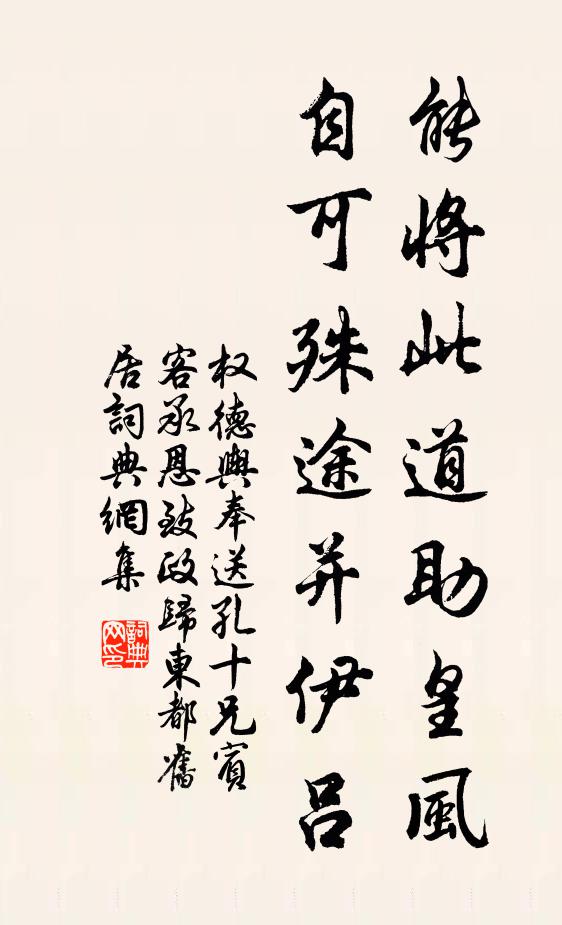 能將此道助皇風
自可殊途并伊呂
权德輿奉送孔十兄賓
客承恩致政歸東都舊
居詞典網集
詞典
网印